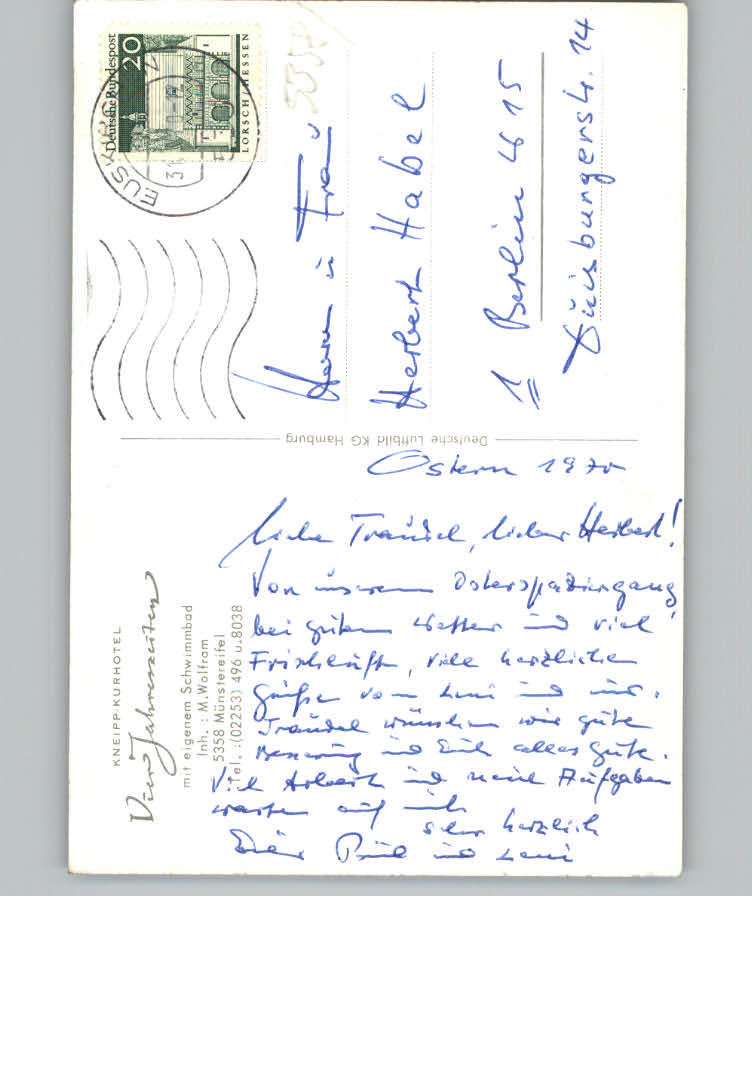 KNEIPP-KURHOTEL
Vier Jahreszeiten
mit eigenem Schwimmbad
Inh.: M. Wolfram
5358 Münstereifel
Tel.: (02253) 496 u. 8038
Ostern 1970
Liebe Traudel, lieber Herbert!
Von unserem Osterspaziergang
bei gutem Wetter und viel
Frischluft, viele herzliche
Grüße von Leni und mir.
Traudel wünschen wir gute
Besserung und Euch alles Gute.
Viel Arbeit und neue Aufgaben
warten auf mich
sehr herzlich
Eure und Leni
Deutsche Luftbild KG Hamburg
Deutsche Bundespost
20
LORSCH/HESSEN
EUSKIRCHEN
Herrn u Frau
Herbert Habel
1 Berlin 15
Duisburgerstr. 14